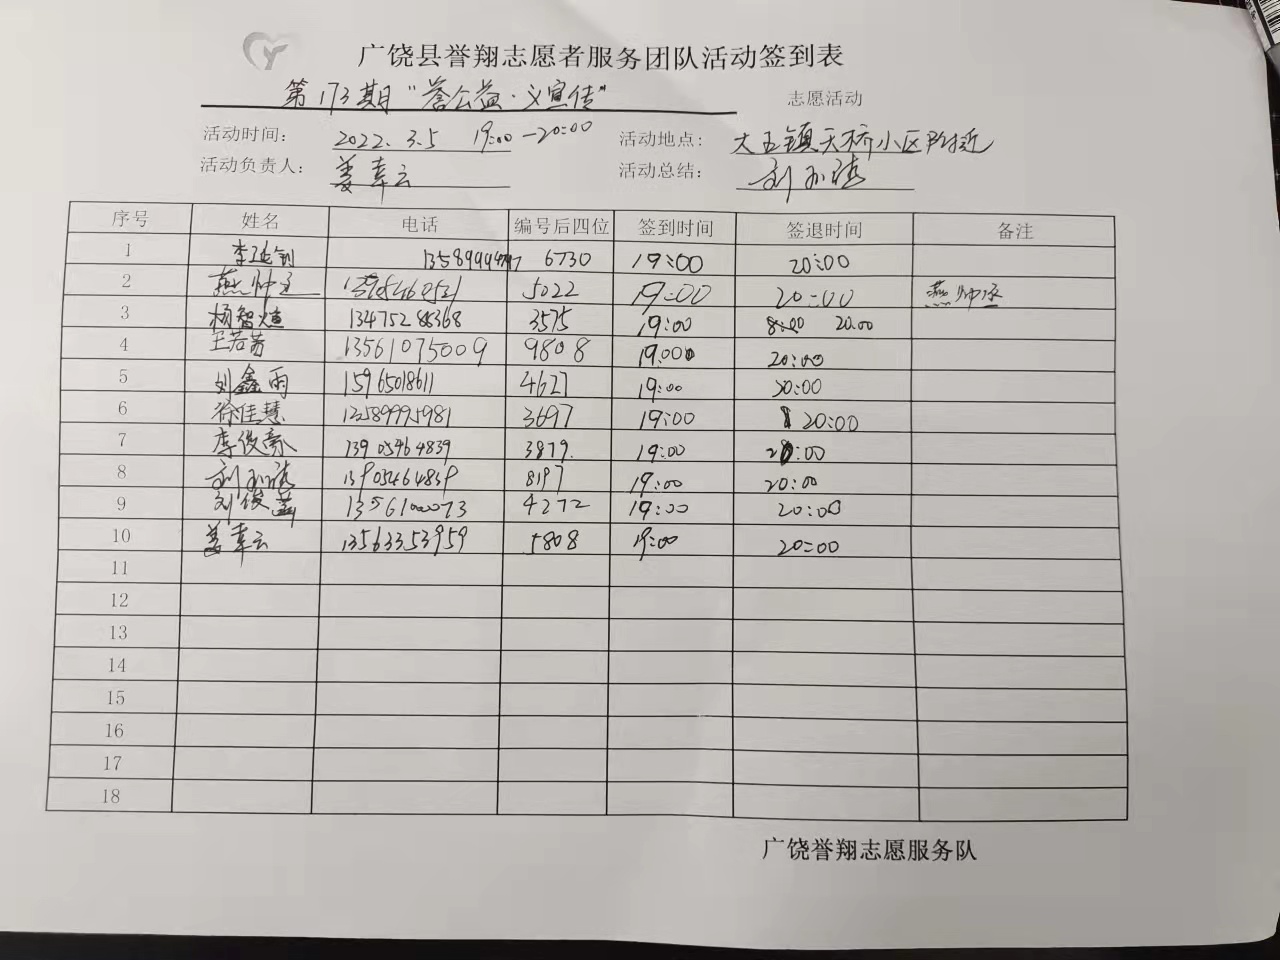 广饶县誉翔志愿者服务团队活动签到表
第173期"誉公益·义宣传" 志愿活动
活动时间: 2022.3.5 19:00-20:00 活动地点: 大王镇天桥小区附近
活动负责人: 姜幸云 活动总结: 刘
序号 姓名 电话 编号后四位 签到时间 签退时间 备注
1 李延钊 6730 19:00 20:00
2 燕帅丞 5022 19:00 20:00 燕帅丞
3 杨智煊 3575 19:00 20.00
4 王若芳 13561075009 9808 19:000 20:00
5 刘鑫雨 15965018611 4627 19:00 20:00
6 徐佳慧 13589995981 3697 19:00 20:00
7 李俊豪 13905464839 3879. 19:00 20:00
8 刘 13905464839 8197 19:00 20:00
9 刘俊 4272 19:00 20:00
10 姜幸云 13563353959 5808 19:00 20:00
11
12
13
14
15
16
17
18
广饶誉翔志愿服务队